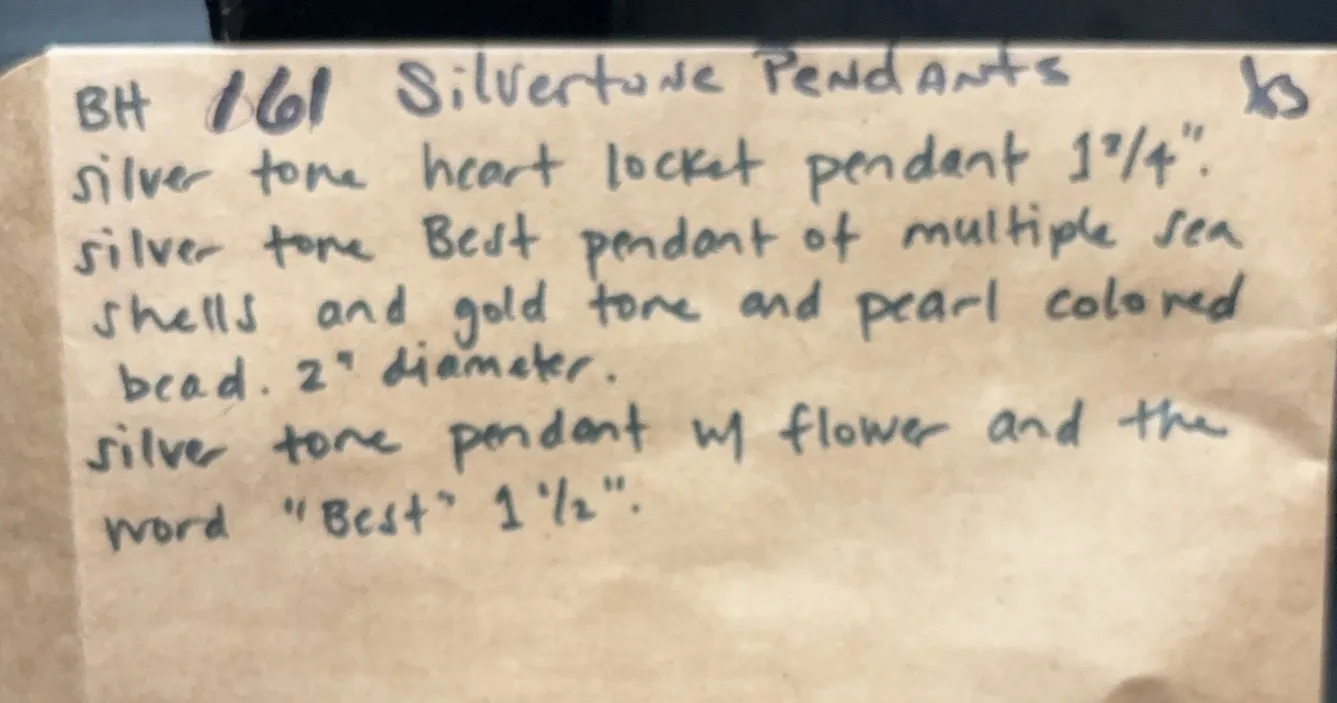 BH 161 Silvertone Pendants
silver tone heart locket pendant 1 3/4".
silver tone Best pendant of multiple sea
shells and gold tone and pearl colored
bead. 2" diameter.
silver tone pendant w/ flower and the
word "Best" 1 1/2".